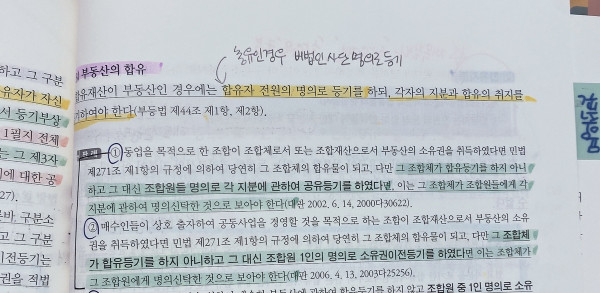 총유인경우 비법인사단 명의로 등기
부동산의 합유
하고 그 구분
유자가 자신
합유재산이 부동산인 경우에는 합유자 전원의 명의로 등기를 하되, 각자의 지분과 합유의 취지를
서 등기부상
기하여야 한다(부등법 제44조 제1항, 제2항).
1필지 전체
는 그 제3자
판례 ① 동업을 목적으로 한 조합이 조합체로서 또는 조합재산으로서 부동산의 소유권을 취득하였다면 민법
에 대한 공
제271조 제1항의 규정에 의하여 당연히 그 조합체의 합유물이 되고, 다만 그 조합체가 합유등기를 하지 아니
27).
하고 그 대신 조합원들 명의로 각 지분에 관하여 공유등기를 하였다면, 이는 그 조합체가 조합원들에게 각
지분에 관하여 명의신탁한 것으로 보아야 한다(대판 2002, 6, 14, 2000다30622).
구분소
② 매수인들이 상호 출자하여 공동사업을 경영할 것을 목적으로 하는 조합이 조합재산으로서 부동산의 소유
하고 그 구분
권을 취득하였다면 민법 제271조 제1항의 규정에 의하여 당연히 그 조합체의 합유물이 되고, 다만 그 조합체
이전등기는
가 합유등기를 하지 아니하고 그 대신 조합원 1인의 명의로 소유권이전등기를 하였다면 이는 조합체가 그
권을 적법
조합원에게 명의신탁한 것으로 보아야 한다(대판 2006, 4, 13, 2003다25256).
합유등기를 하지 않고 조합원 중 1인의 명의로 소유